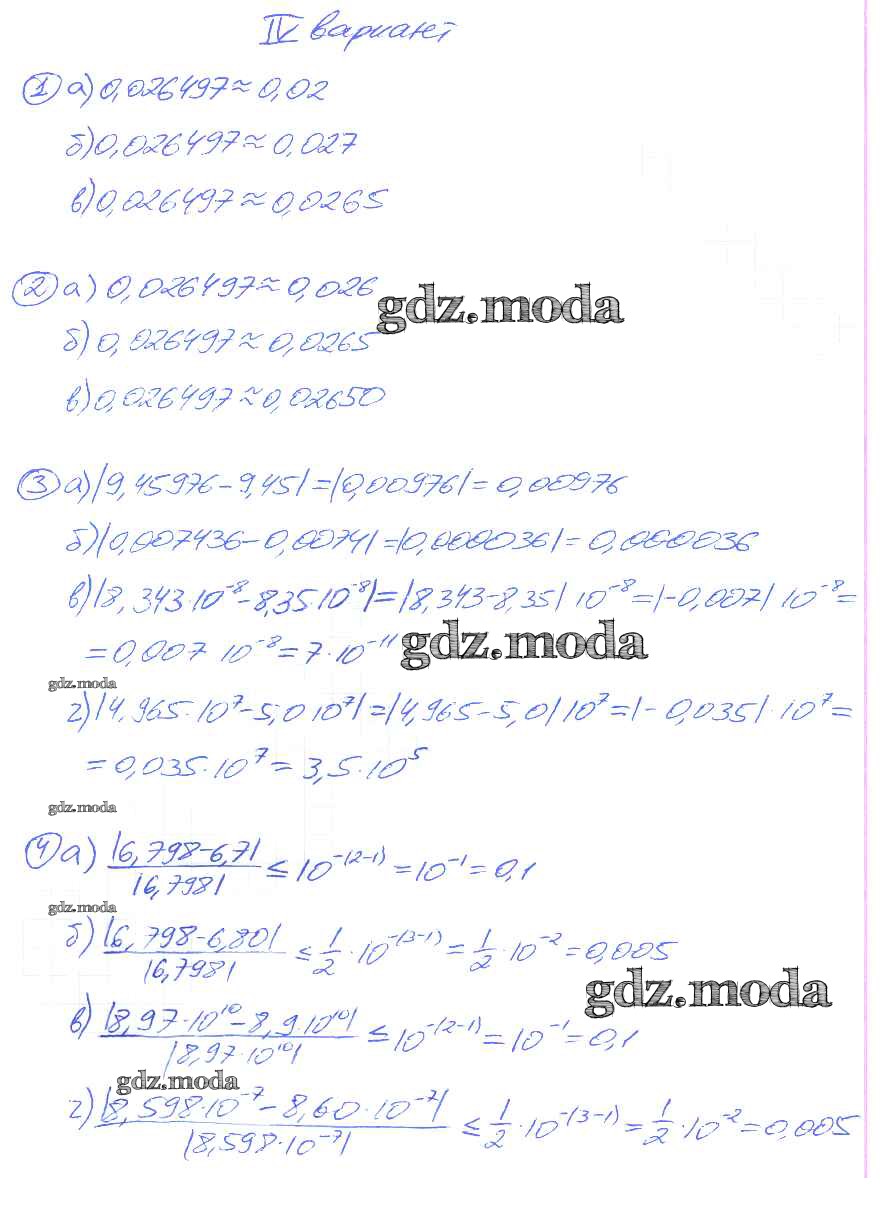 IV вариант
① а) 0,026497 ≈ 0,02
б) 0,026497 ≈ 0,027
в) 0,026497 ≈ 0,0265
② а) 0,026497 ≈ 0,026
gdz.moda
б) 0,026497 ≈ 0,0265
в) 0,026497 ≈ 0,02650
③ а) |9,45976 - 9,45| = |0,00976| = 0,00976
б) |0,007436 - 0,0074| = |0,000036| = 0,000036
в) |8,343·10⁻⁸ - 8,35·10⁻⁸| = |8,343 - 8,35| 10⁻⁸ = |-0,007| 10⁻⁸ =
= 0,007 10⁻⁸ = 7·10⁻¹¹
gdz.moda
gdz.moda
г) |4,965·10⁷ - 5,0 10⁷| = |4,965 - 5,0| 10⁷ = |-0,035|·10⁷ =
= 0,035·10⁷ = 3,5·10⁵
gdz.moda
④ а) |6,798 - 6,7| / |6,798| ≤ 10⁻⁽²⁻¹⁾ = 10⁻¹ = 0,1
gdz.moda
б) |6,798 - 6,80| / |6,798| ≤ 1/2 · 10⁻⁽³⁻¹⁾ = 1/2 · 10⁻² = 0,005
gdz.moda
в) |8,97·10¹⁰ - 8,9·10¹⁰| / |8,97·10¹⁰| ≤ 10⁻⁽²⁻¹⁾ = 10⁻¹ = 0,1
gdz.moda
г) |8,598·10⁻⁷ - 8,60·10⁻⁷| / |8,598·10⁻⁷| ≤ 1/2 · 10⁻⁽³⁻¹⁾ = 1/2 · 10⁻² = 0,005